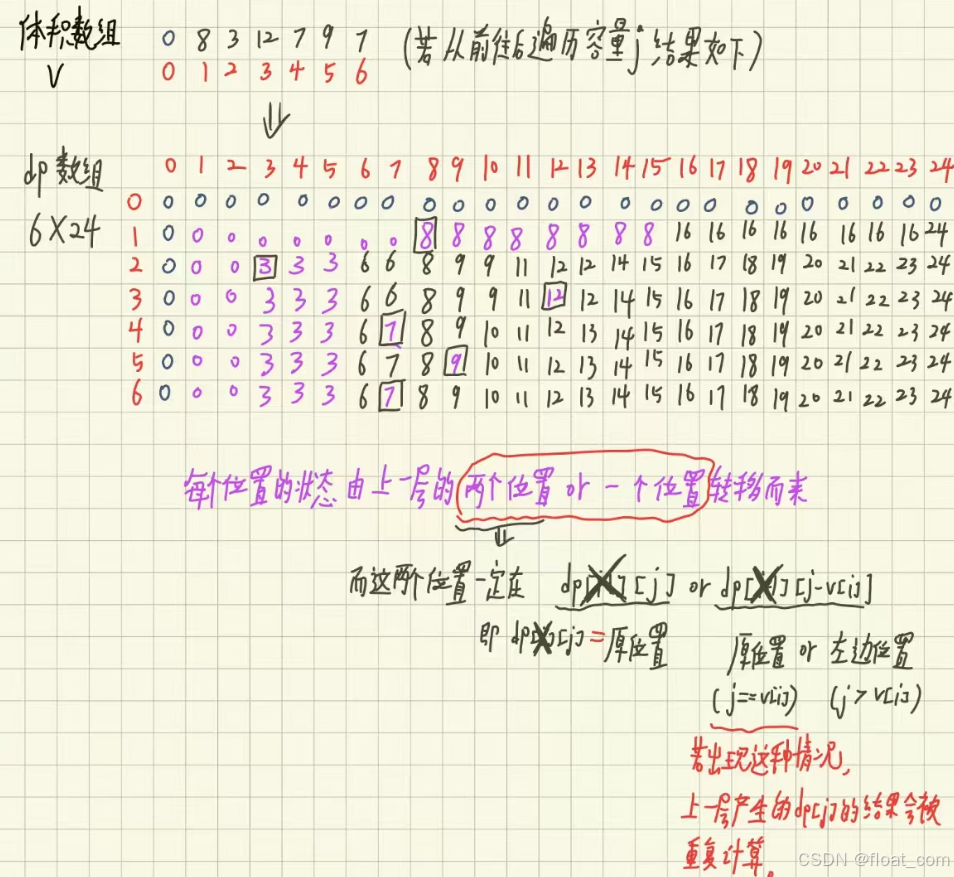 体积数组 0 8 3 12 7 9 7 (若从前往后遍历容量j结果如下)
V 0 1 2 3 4 5 6
dp数组 0 1 2 3 4 5 6 7 8 9 10 11 12 13 14 15 16 17 18 19 20 21 22 23 24
6X24
0 0 0 0 0 0 0 0 0 0 0 0 0 0 0 0 0 0 0 0 0 0 0 0 0 0
1 0 0 0 0 0 0 0 0 8 8 8 8 8 8 8 8 16 16 16 16 16 16 16 16 24
2 0 0 0 3 3 3 6 6 8 9 9 11 12 12 14 15 16 17 18 19 20 21 22 23 24
3 0 0 0 3 3 3 6 6 8 9 9 11 12 12 14 15 16 17 18 19 20 21 22 23 24
4 0 0 0 3 3 3 6 7 8 9 10 11 12 13 14 15 16 17 18 19 20 21 22 23 24
5 0 0 0 3 3 3 6 7 8 9 10 11 12 13 14 15 16 17 18 19 20 21 22 23 24
6 0 0 0 3 3 3 6 7 8 9 10 11 12 13 14 15 16 17 18 19 20 21 22 23 24
每个位置的状态由上一层的两个位置or一个位置转移而来
而这两个位置一定在 dp[][j] or dp[][j-v[i]]
即 dp[][j]=原位置 原位置 or 左边位置
(j==v[i]) (j>v[i])
若出现这种情况,
上一层产生的dp[j]的结果会被
重复计算。
CSDN @float_com